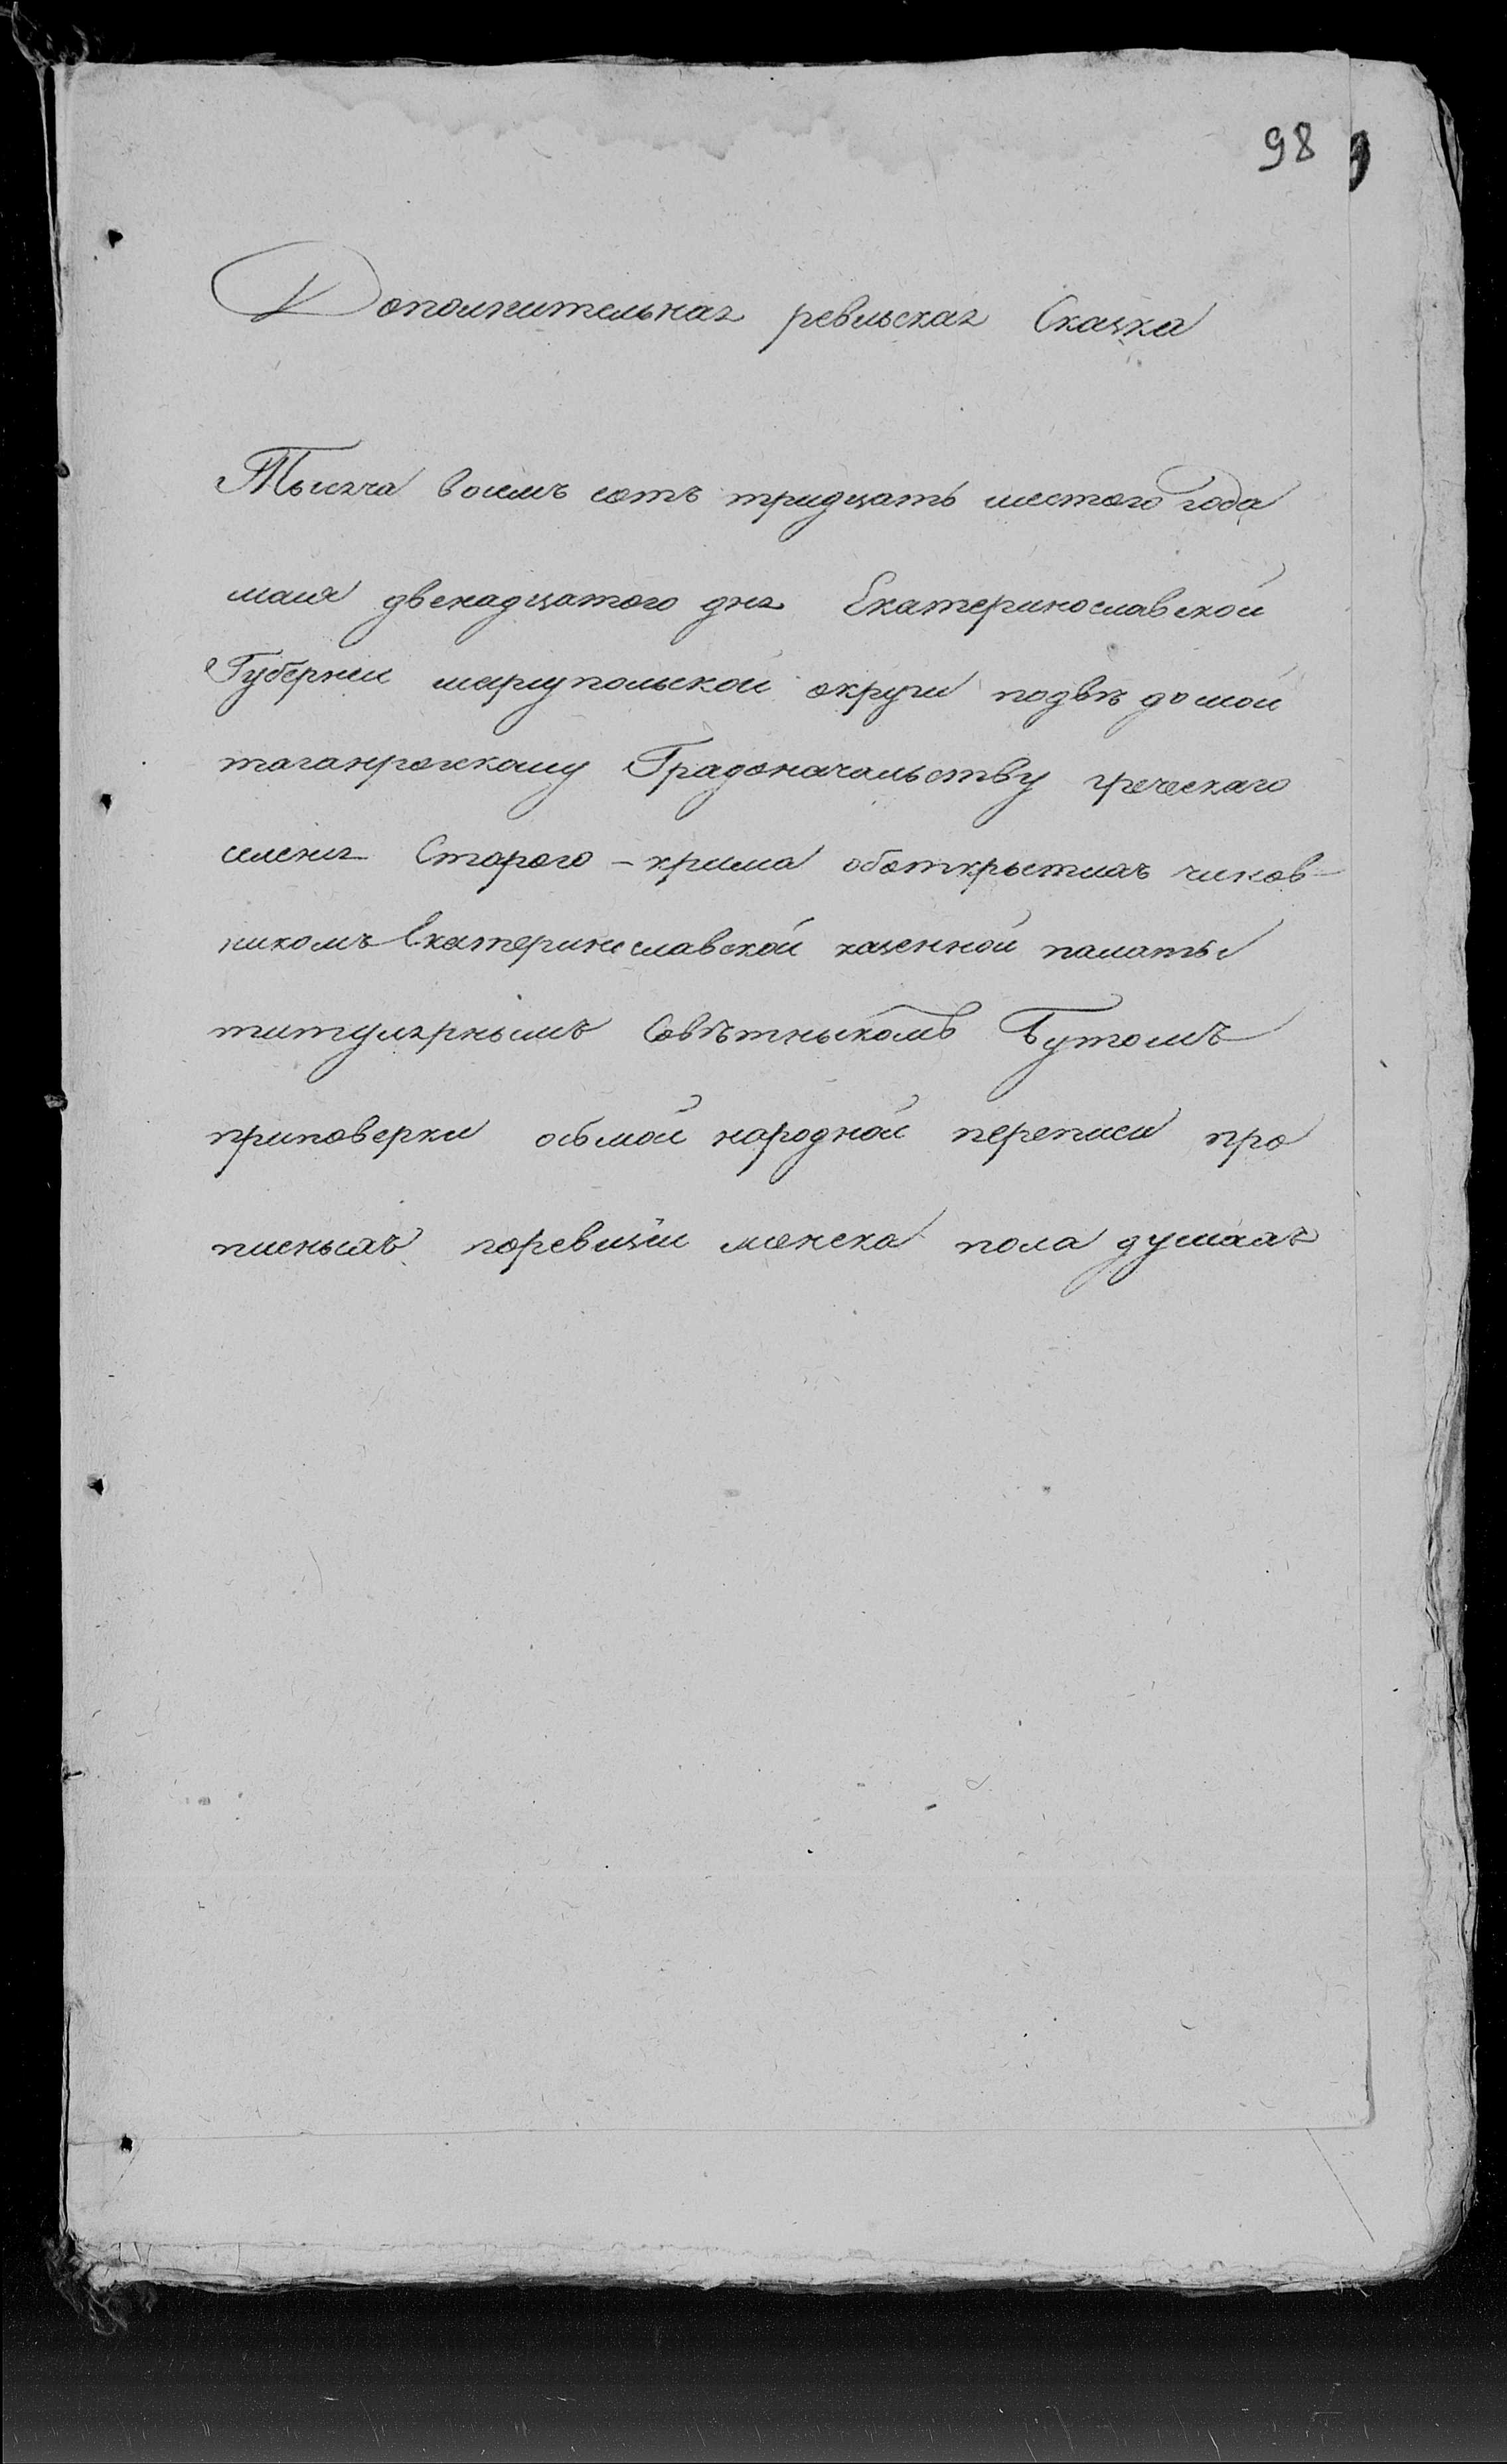 98
Дополнительная ревизская Сказка
Тысяча восемъ сотъ тридцать шестого года
маия двенадцатого дня Екатеринославской
Губернии мариупольской округи подвѣдомой
таганрогскому Градоначальству греческаго
селения Старого-крима оботкрытихъ чинов-
никомъ Екатеринославской казенной палаты
титулярнымъ Совѣтныкомъ Бутомъ
приповерки осьмой народной переписи про
писныхъ поревизіи женска пола душахъ